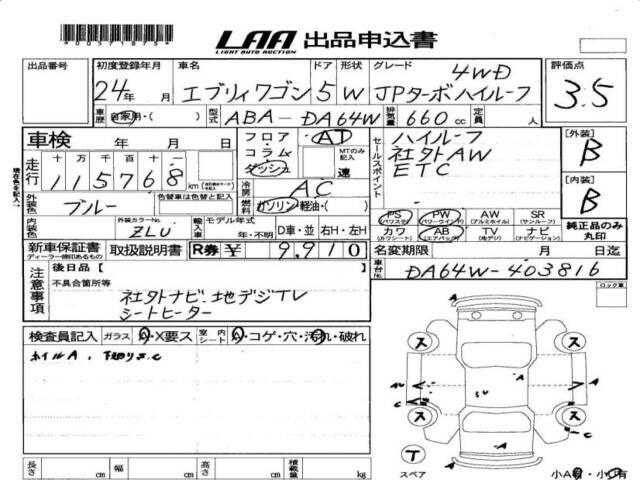 *00571875*
LAA 出品申込書
LIGHT AUTO AUCTION
出品番号 初度登録年月 車名 ドア 形状 グレード 評価点
24年 月 エブリィワゴン 5 W 4WD JPターボハイルーフ 3.5
車歴 自家用・( ) 型式 ABA-DA64W 排気量 660cc 定員 人
車検 年 月 フロア・コラム・ダッシュ AT MTのみ記入 速
セールスポイント ハイルーフ
社外AW
ETC
[外装] B
[内装] B
現在色を記入→
走行 十万千百十一 115768 km
冷房 AC
燃料 ガソリン・軽油・( )
外装色 ブルー 色替車は色替と記入
内装色 外装カラーNo. ZLU 輸入車 モデル年式 年・不明 D車・並 右H・左H
PS (パワステ) PW (パワーウインド) AW (アルミホイル) SR (サンルーフ)
カワ (カワシート) AB (エアバック) TV (地デジ) ナビ (ナビゲーション)
純正品のみ丸印
新車保証書 ディーラー捺印あるもの 取扱説明書 R券 ¥ 9,910 名変期限 月 日迄
車台No. DA64W-403816
注意事項 後日品【 】
不具合箇所等
社外ナビ・地デジTV
シートヒーター
ロック車
検査員記入 ガラス A・X要ス 室内シート コゲ・穴・汚れ・破れ
ホイルA、下廻りS.C
ス ス
A
A A
C C
ス ス
A
T
スペア 小A有・小U有
長さ cm 幅 cm 高さ cm 積載量 kg